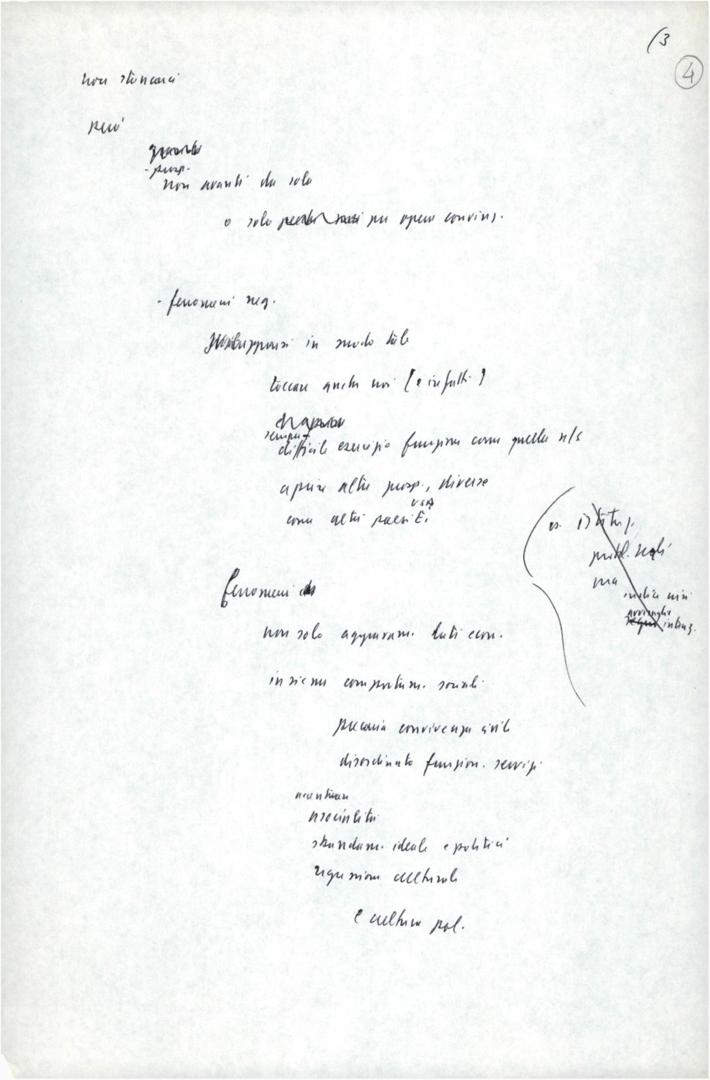 (3
4
non stancarci
però
- prosp.
non avanti da solo
o solo per opera convinz.
- fenomeni neg.
svilupparsi in modo tale
toccare anche noi (e infatti)
sempre
difficile esercizio funzione come quella n/s
aprire altre prosp., diverse
USA
come altri paesi E.
es. istituz.
ma
fenomeni
non solo aggravam. dati econ.
insieme comportam. sociali
precaria convivenza civile
disordinato funzion. servizi
asocialità
sbandam. ideale e politici
regressione culturale
e cultura pol.